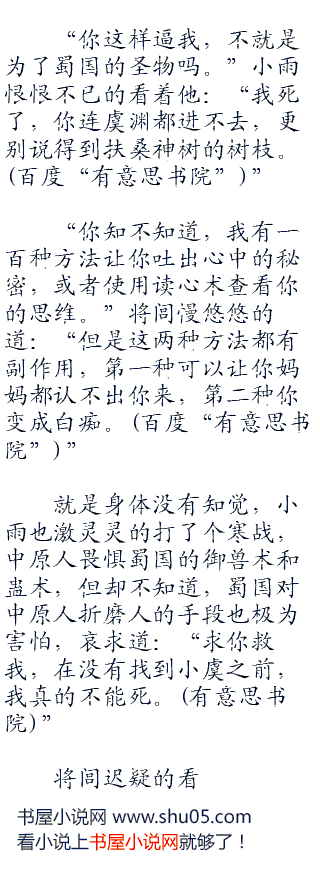 “你这样逼我，不就是
为了蜀国的圣物吗。”小雨
恨恨不已的看着他：“我死
了，你连虞渊都进不去，更
别说得到扶桑神树的树枝。
(百度“有意思书院”)”
“你知不知道，我有一
百种方法让你吐出心中的秘
密，或者使用读心术查看你
的思维。”将闾慢悠悠的
道：“但是这两种方法都有
副作用，第一种可以让你妈
妈都认不出你来，第二种你
变成白痴。(百度“有意思书
院”)”
就是身体没有知觉，小
雨也激灵灵的打了个寒战，
中原人畏惧蜀国的御兽术和
蛊术，但却不知道，蜀国对
中原人折磨人的手段也极为
害怕，哀求道：“求你救
我，在没有找到小虞之前，
我真的不能死。(有意思书
院)”
将闾迟疑的看
书屋小说网 www.shu05.com
看小说上书屋小说网就够了！